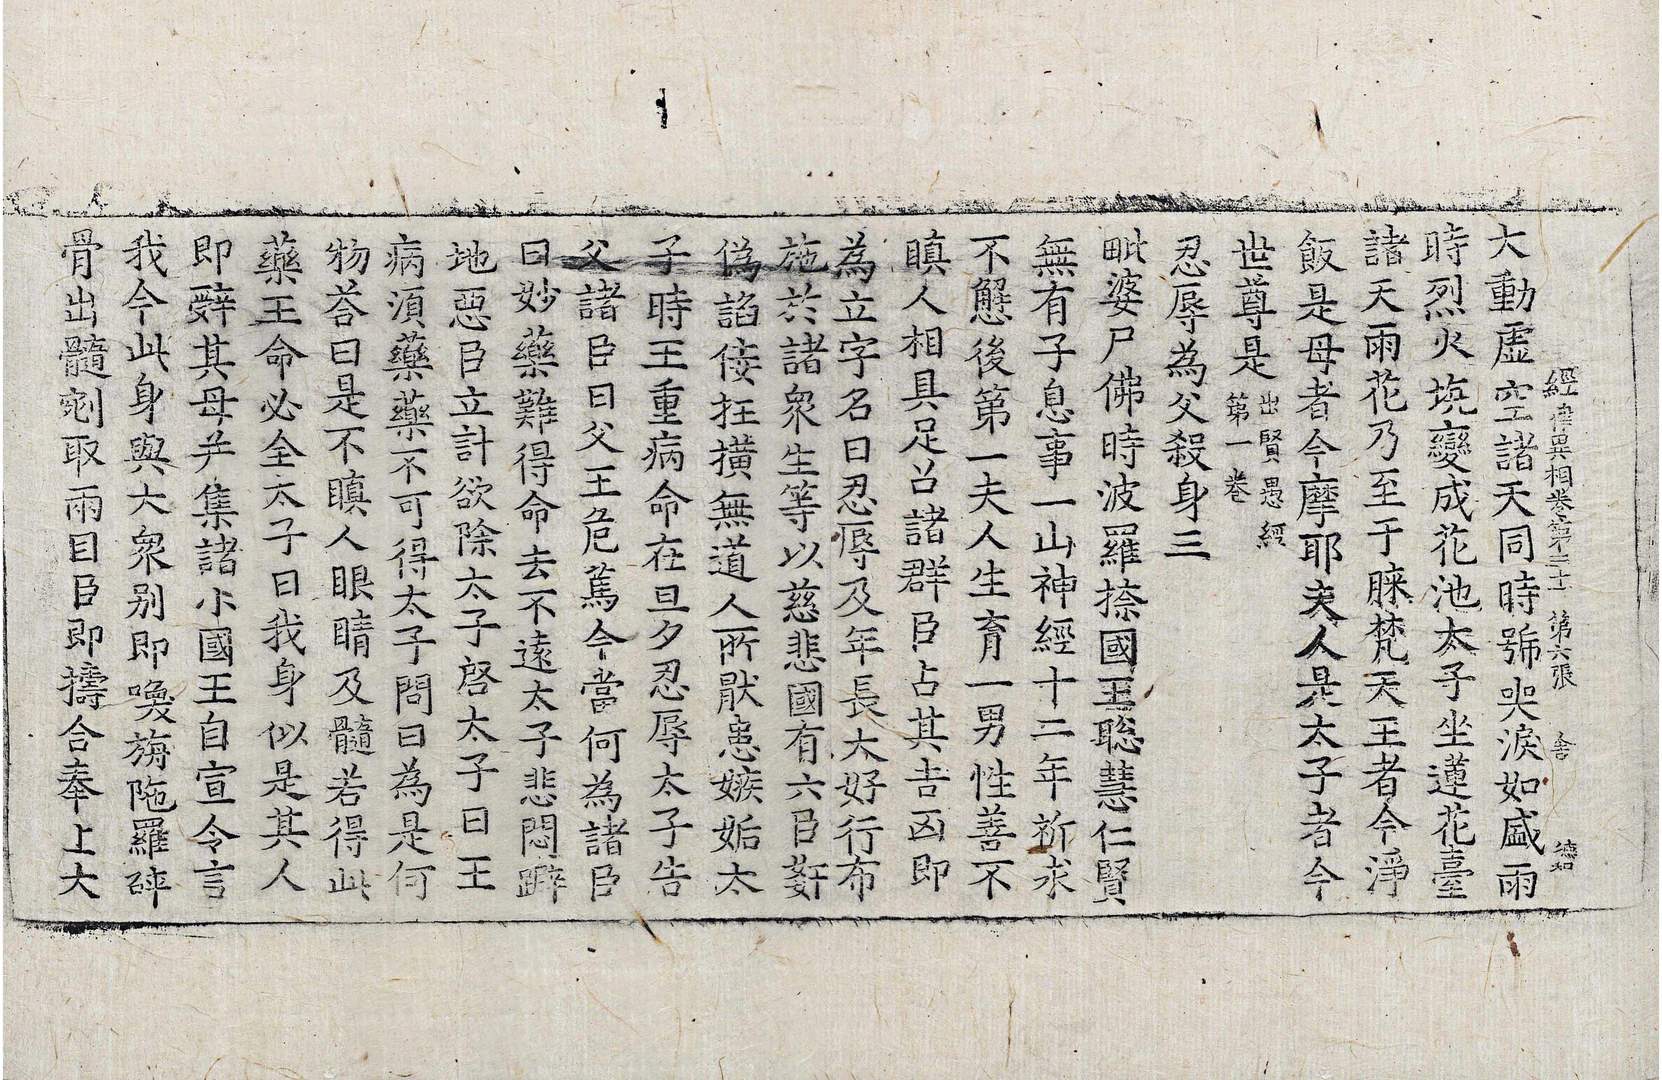 經律異相卷第三十一 第六張 舍 德和
大動虛空諸天同時號哭淚如盛雨
時烈火坑變成花池太子坐蓮花臺
諸天雨花乃至于膝梵天王者今淨
飯是母者今摩耶夫人是太子者今
世尊是出賢愚經第一卷
忍辱為父殺身三
毗婆尸佛時波羅捺國王聡慧仁賢
無有子息事一山神經十二年祈求
不懈後第一夫人生育一男性善不
瞋人相具足召諸群臣占其吉凶即
為立字名曰忍辱及年長大好行布
施於諸衆生等以慈悲國有六臣姧
偽諂佞抂撗無道人所猒患嫉妬太
子時王重病命在旦夕忍辱太子告
父諸臣曰父王危篤今當何為諸臣
曰妙藥難得命去不遠太子悲悶躃
地惡臣立計欲除太子啓太子曰王
病湏藥藥不可得太子問曰為是何
物荅曰是不瞋人眼睛及髓若得此
藥王命必全太子曰我身似是其人
即辭其母并集諸小國王自宣令言
我今此身與大衆别即喚旃陁羅碎
骨出髓剜取兩目臣即擣合奉上大